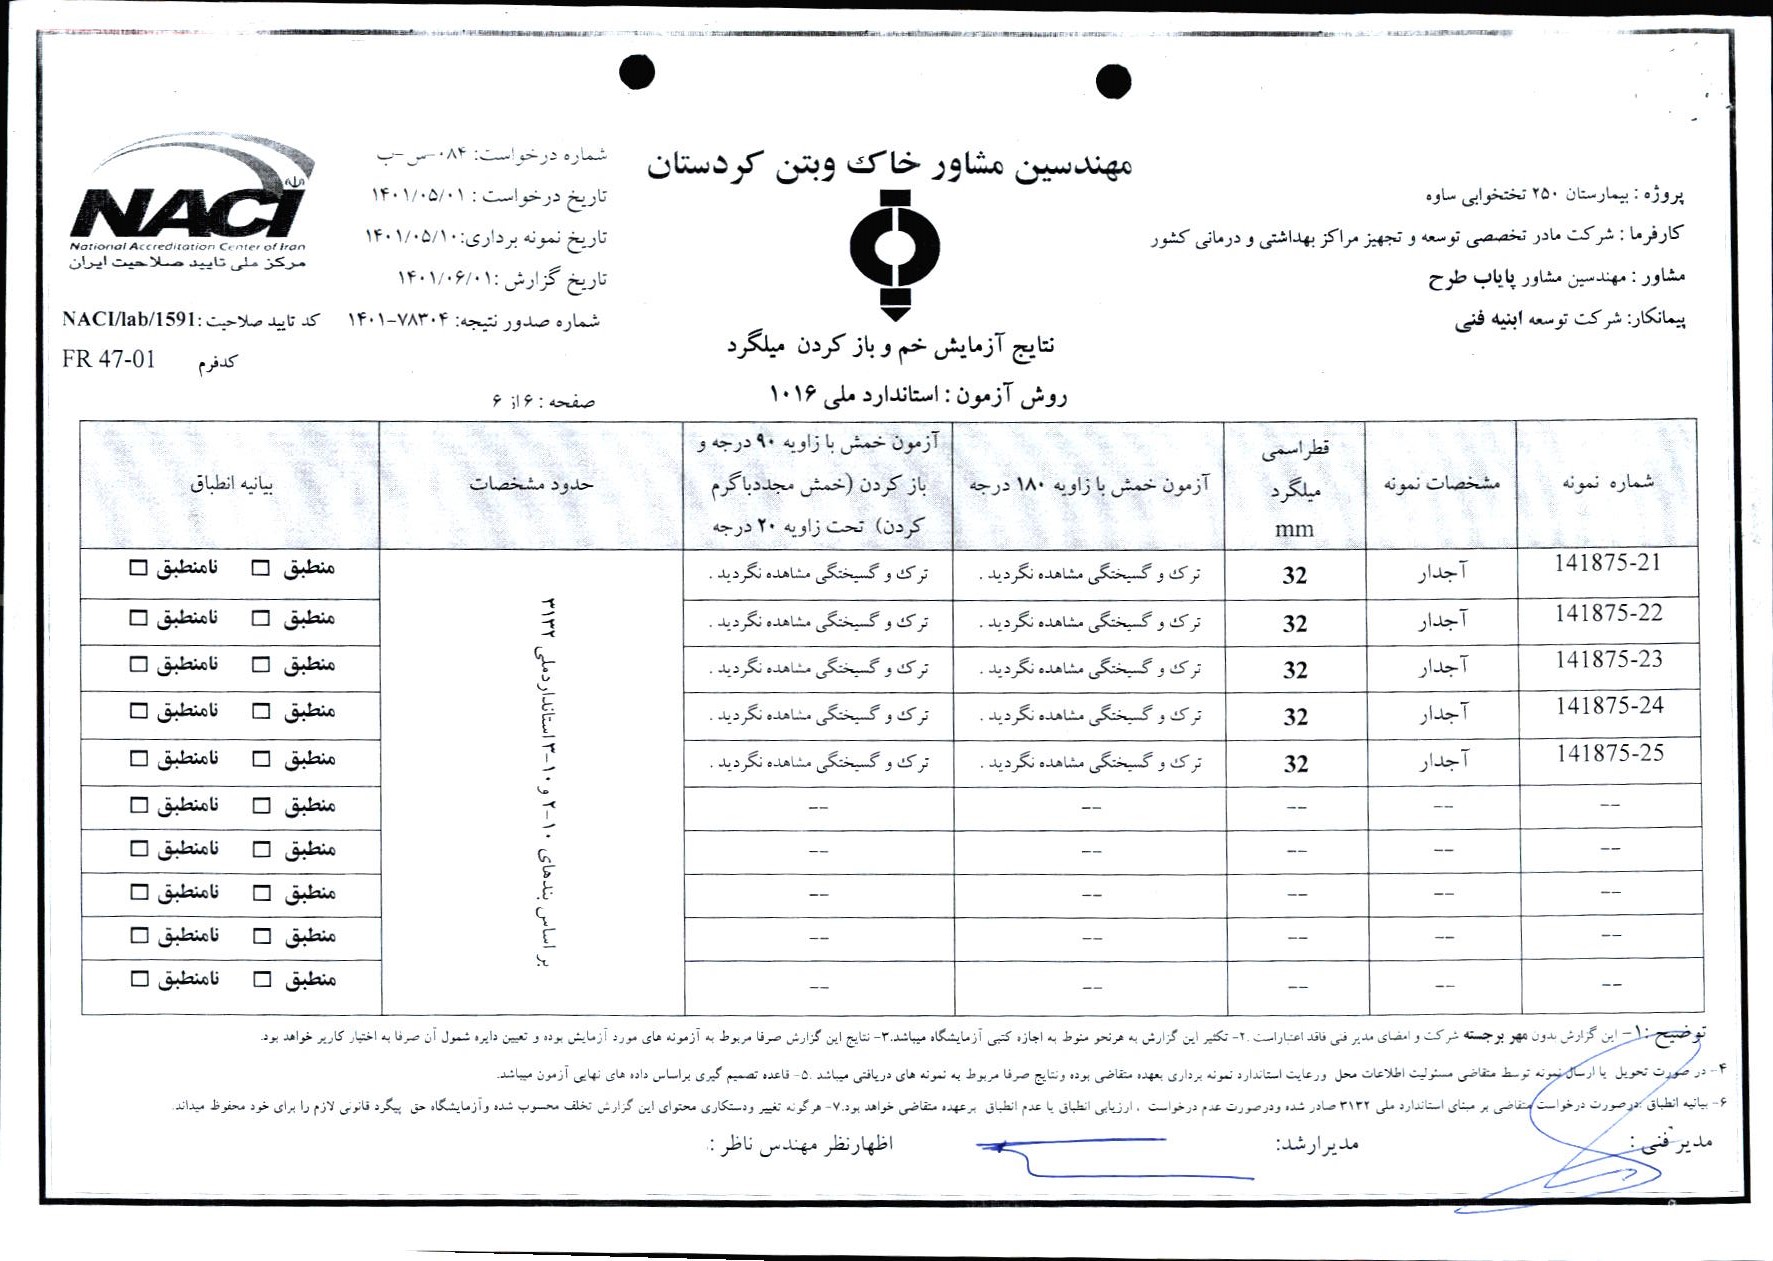 مهندسین مشاور خاک وبتن کردستان
پروژه : بیمارستان ۲۵۰ تختخوابی ساوه
کارفرما : شرکت مادر تخصصی توسعه و تجهیز مراکز بهداشتی و درمانی کشور
مشاور : مهندسین مشاور پایاب طرح
پیمانکار: شرکت توسعه ابنیه فنی
نتایج آزمایش خم و باز کردن میلگرد
روش آزمون : استاندارد ملی ۱۰۱۶
شماره درخواست: ۰۸۴-س-ب
تاریخ درخواست : ۱۴۰۱/۰۵/۰۱
تاریخ نمونه برداری:۱۴۰۱/۰۵/۱۰
تاریخ گزارش :۱۴۰۱/۰۶/۰۱
شماره صدور نتیجه: ۷۸۳۰۴-۱۴۰۱
صفحه : ۶ از ۶
NACI
National Accreditation Center of Iran
مرکز ملی تایید صلاحیت ایران
کد تایید صلاحیت :NACI/lab/1591
کدفرم FR 47-01
شماره نمونه
مشخصات نمونه
قطراسمی
میلگرد
mm
آزمون خمش با زاویه ۱۸۰ درجه
آزمون خمش با زاویه ۹۰ درجه و
باز کردن (خمش مجددباگرم
کردن) تحت زاویه ۲۰ درجه
حدود مشخصات
بیانیه انطباق
141875-21 آجدار 32 ترک و گسیختگی مشاهده نگردید . ترک و گسیختگی مشاهده نگردید . منطبق □ نامنطبق □
141875-22 آجدار 32 ترک و گسیختگی مشاهده نگردید . ترک و گسیختگی مشاهده نگردید . منطبق □ نامنطبق □
141875-23 آجدار 32 ترک و گسیختگی مشاهده نگردید . ترک و گسیختگی مشاهده نگردید . منطبق □ نامنطبق □
141875-24 آجدار 32 ترک و گسیختگی مشاهده نگردید . ترک و گسیختگی مشاهده نگردید . منطبق □ نامنطبق □
141875-25 آجدار 32 ترک و گسیختگی مشاهده نگردید . ترک و گسیختگی مشاهده نگردید . منطبق □ نامنطبق □
-- -- -- -- -- منطبق □ نامنطبق □
-- -- -- -- -- منطبق □ نامنطبق □
-- -- -- -- -- منطبق □ نامنطبق □
-- -- -- -- -- منطبق □ نامنطبق □
-- -- -- -- -- منطبق □ نامنطبق □
بر اساس بندهای ۱۰-۲ و ۱۰-۳ استانداردملی ۳۱۳۲
توضیح :۱- این گزارش بدون مهر برجسته شرکت و امضای مدیر فنی فاقد اعتباراست .۲- تکثیر این گزارش به هرنحو منوط به اجازه کتبی آزمایشگاه میباشد.۳- نتایج این گزارش صرفا مربوط به آزمونه های مورد آزمایش بوده و تعیین دایره شمول آن صرفا به اختیار کاربر خواهد بود.
۴- در صورت تحویل یا ارسال نمونه توسط متقاضی مسئولیت اطلاعات محل ورعایت استاندارد نمونه برداری بعهده متقاضی بوده ونتایج صرفا مربوط به نمونه های دریافتی میباشد .۵- قاعده تصمیم گیری براساس داده های نهایی آزمون میباشد.
۶- بیانیه انطباق :درصورت درخواست متقاضی بر مبنای استاندارد ملی ۳۱۳۲ صادر شده ودرصورت عدم درخواست ، ارزیابی انطباق یا عدم انطباق برعهده متقاضی خواهد بود.۷- هرگونه تغییر ودستکاری محتوای این گزارش تخلف محسوب شده وآزمایشگاه حق پیگرد قانونی لازم را برای خود محفوظ میداند.
مدیر فنی : مدیرارشد: اظهارنظر مهندس ناظر :